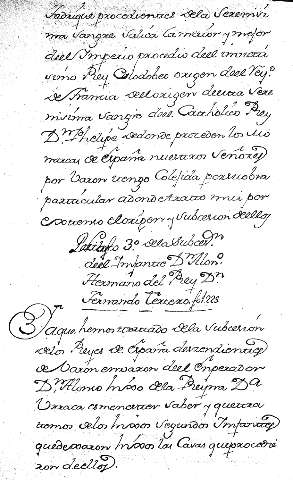 procedientes de la Serenisi
ma Sangre Salica la maior y mejor
de el Imperio procedio de el
simo Rey Clodobeo origen de el Rey.º
de Francia de el origen de esta Sere
nisima Sangre de el Catholico Rey
D.n Phelipe de donde proceden los Mo
narcas de España nuestros Señores
por Varon tengo Colejida por su obra
particular a donde trato mui por
extenso el origen y Subcesion de ellos
Parrafo 3.º de la Subces.on
de el Infante D.n Alon.º
Hermano del Rey D.n
Fernando Tercero
Ya que hemos tratado de la Subcesion
de los Reyes de España desendientes
de Varon en varon de el Enperador
D.n Alonso hixo de la Reyna D.a
Vrraca es menester Saber y que tra
temos de los hixos Segundos Infantes
que dexaron hixos las Casas que procedie
ron de ellos.